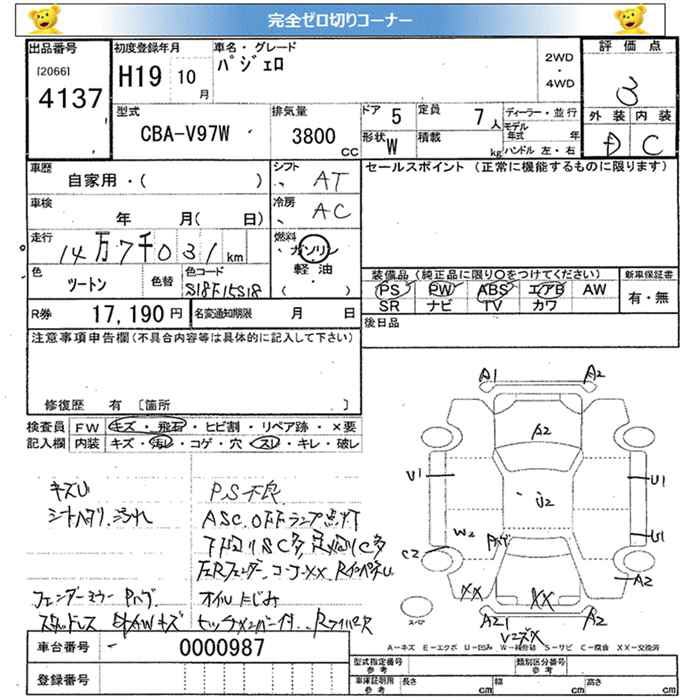 完全ゼロ切りコーナー
出品番号 [2066] 4137
初度登録年月 H19 10月
車名・グレード パジェロ
2WD・4WD
評価点 3
外装 D 内装 C
型式 CBA-V97W
排気量 3800 CC
ドア 5 定員 7人
形状 W 積載 kg
ディーラー・並行
モデル年式 年
ハンドル 左・右
車歴 自家用・( )
シフト AT
セールスポイント (正常に機能するものに限ります)
車検 年 月( 日)
冷房 AC
走行 14万7千031km
燃料 ガソリン 軽油 ( )
色 ツートン 色替
色コード S18F15S18
装備品 (純正品に限り○をつけてください)
PS PW ABS エアB AW
SR ナビ TV カワ
新車保証書 有・無
R券 17,190円
名変通知期限 月 日
後日品
注意事項申告欄(不具合内容等は具体的に記入して下さい)
修復歴 有 [箇所 ]
検査員記入欄
FW キズ・飛石・ヒビ割・リペア跡・×要
内装 キズ・汚レ・コゲ・穴・スレ・キレ・破レ
キズU
シートヘタリ、汚れ
PS不良
ASC.OFFランプ点灯
オイルにじみ
A1 A2
A2
U1
U2
W2
C2
U1
U1
A2
XX
XX
A21
A2
スペア
A-キズ E-エクボ U-凹み W-補修跡 S-サビ C-腐食 XX-交換済
車台番号 0000987
登録番号
型式指定番号 参考
類別区分番号 参考
車庫証明用 参考 長さ cm 幅 cm 高さ cm